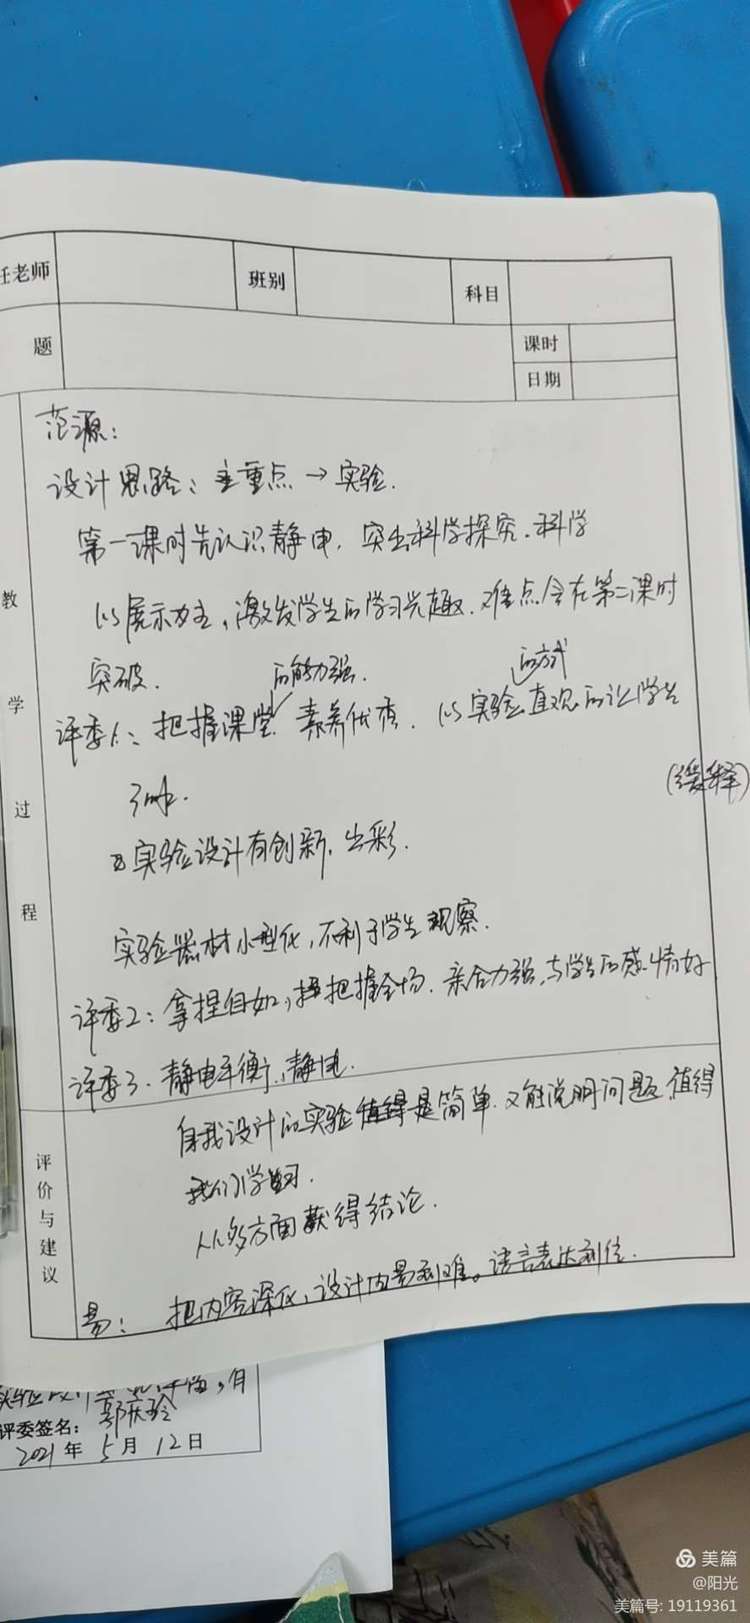 任老师 班别 科目
题 课时
日期
范源：
设计思路：主重点→实验.
第一课时先认识静电，突出科学探究.科学
以展示为主，激发学生的学习兴趣.难点会在第二课时
突破. 的能力强. 的方式
评委1：把握课堂 素养优秀. 以实验直观的让学生
了解.
(缓释)
实验设计有创新，出彩.
实验器材小型化，不利于学生观察.
评委2：拿捏自如，把握全场.亲合力强，与学生的感情好
评委3.静电平衡，静电.
自我设计的实验值得是简单.又能说明问题，值得
我们学习.
从多方面获得结论.
易：把内容深化，设计由易到难。语言表达到位.
教学过程
评价与建议
评委签名：
2021年5月12日
美篇
@阳光
美篇号: 19119361